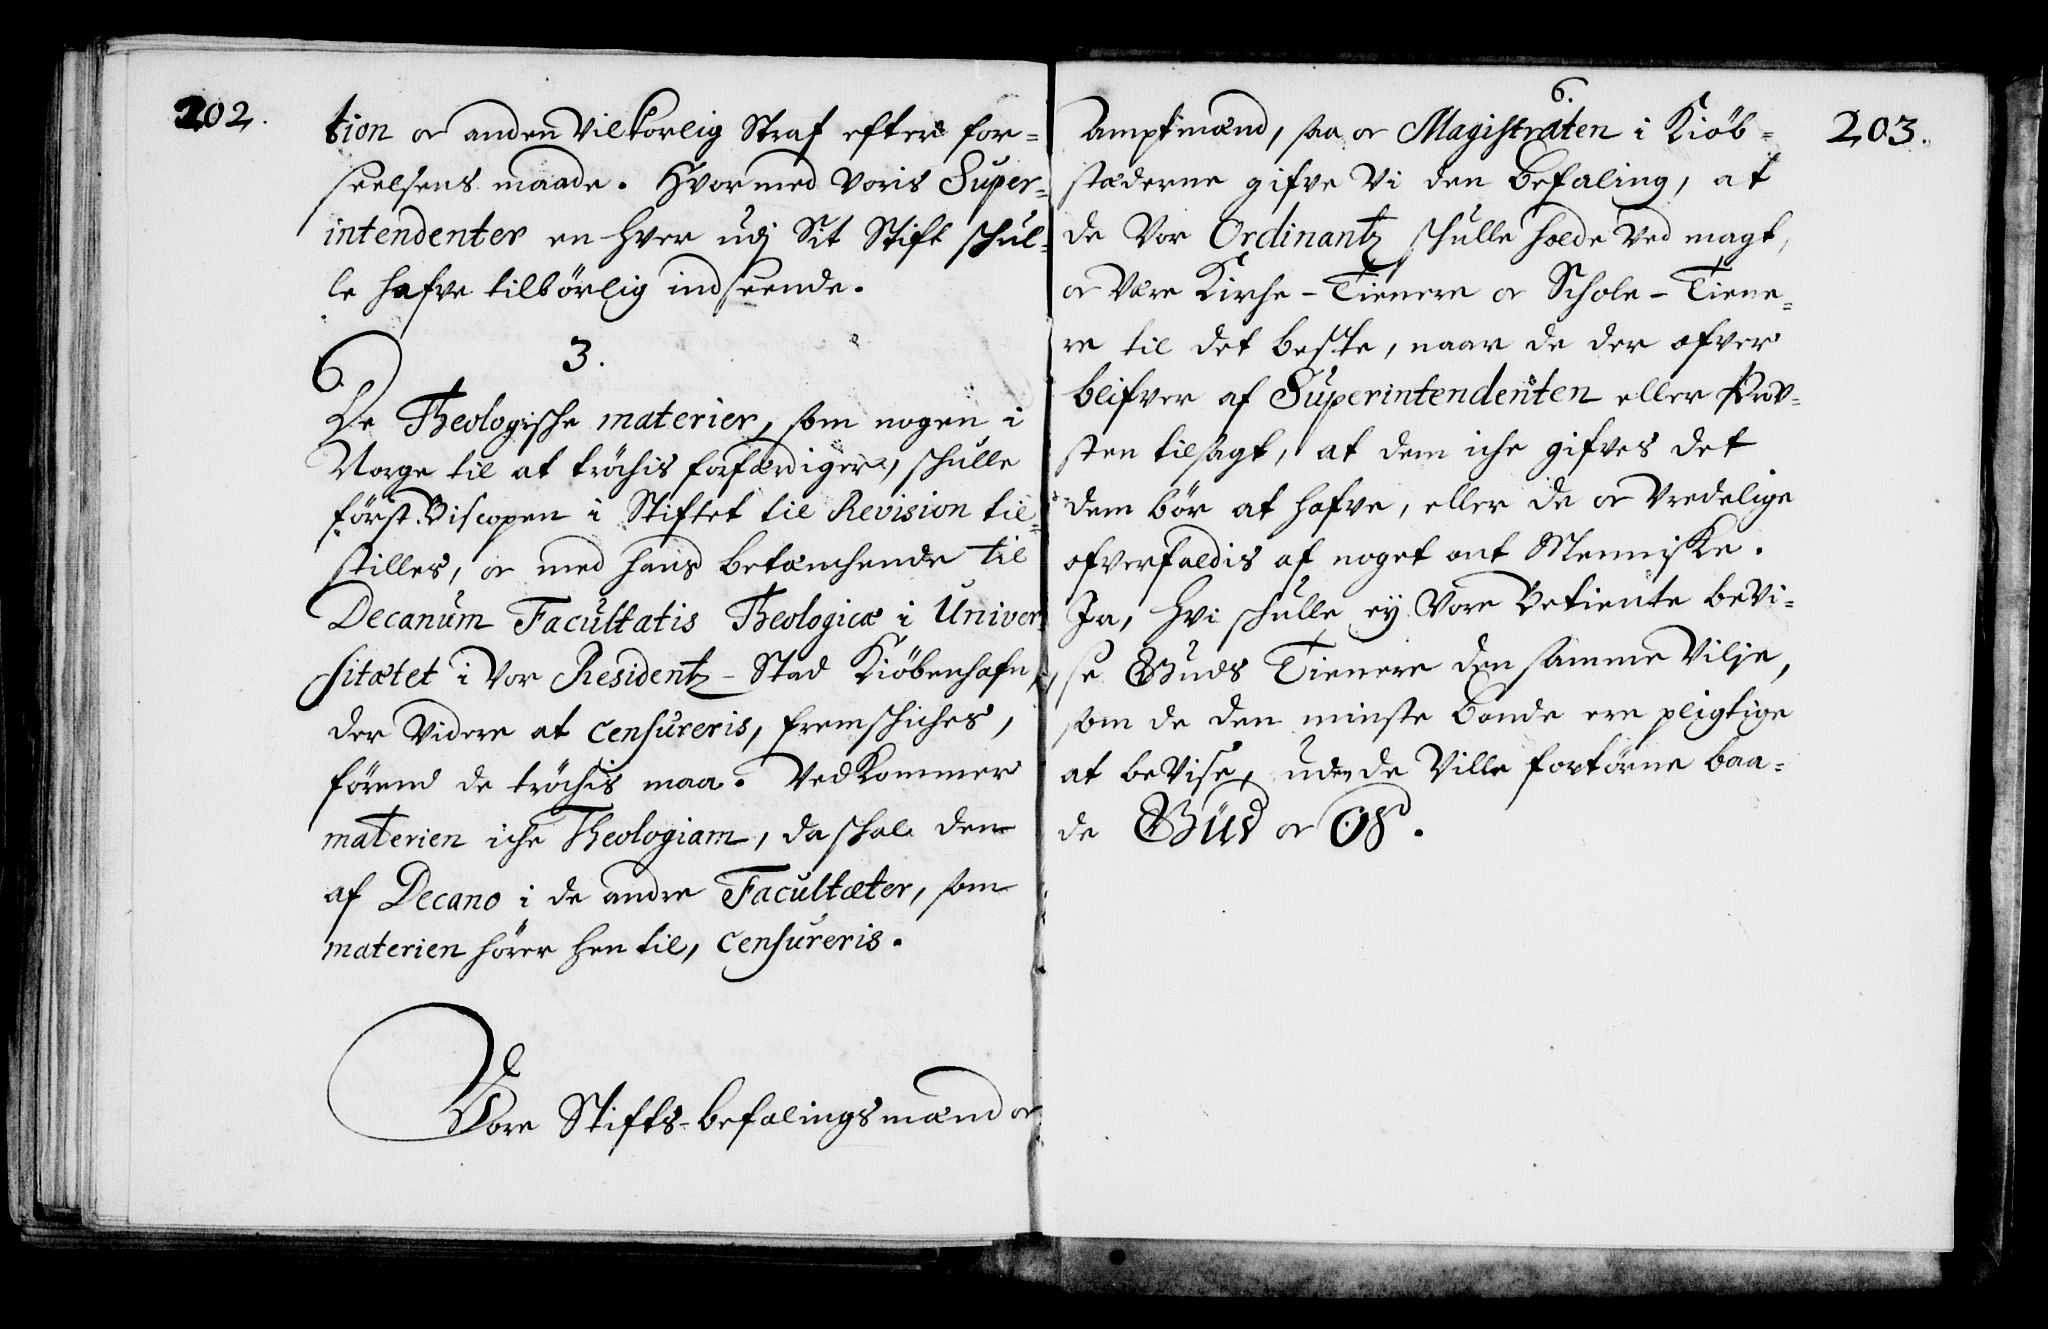 202.
tion or anden Vilkorlig Straf efter for-
seelsens maade. Hvormed Voris Super-
intendenter en hver udj Sit Stift schul-
le hafve tilbörlig indseende.
3.
De Theologische materier, som nogen i
Norge til at tröchis forfærdiger, schulle
först Biscopen i Stiftet til Revision til-
stilles, or med hans betænchende til
Decanum Facultatis Theologicæ i Univer-
sitætet i Vor Residentz-Stad Kiöbenhafn,
der Videre at censureris, fremschiches,
förend de tröchis maa. VedKommer
materien iche Theologiam, da schal den
af Decano i de andre Facultæter, som
materien hörer hen til, censureris.
Vore Stifts-befalingsmænd or
6.
203.
Amptmænd, saa or Magistraten i Kiöb-
stæderne gifve Vi den befaling, at
de Vor Ordinantz schulle holde Ved magt,
or Vere Kirche-Tienere or Schole-Tiene-
re til det beste, naar de der ofver
blifver af Superintendenten eller Prov-
sten tilsagt, at dem iche gifves det
dem bör at hafve, eller de or Vredelige
ofverfaldis af noget ont Menniske.
Ja, hvi schulle ey Vore Betiente beVi-
se Guds Tienere den samme Vilje,
som de den minste bonde ere pligtige
at beVise, uden de Ville fortörne baa-
de Gud or OS.